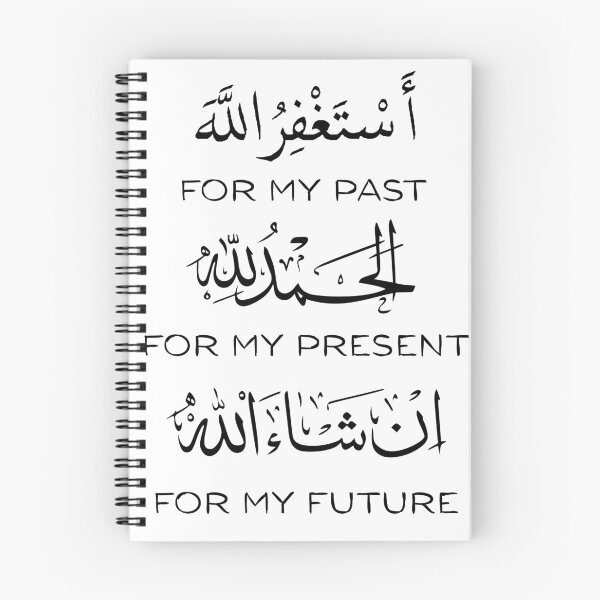 أَسْتَغْفِرُ اللَّهَ
FOR MY PAST
الحمدُ للهِ
FOR MY PRESENT
إن شَاءَ اللهُ
FOR MY FUTURE